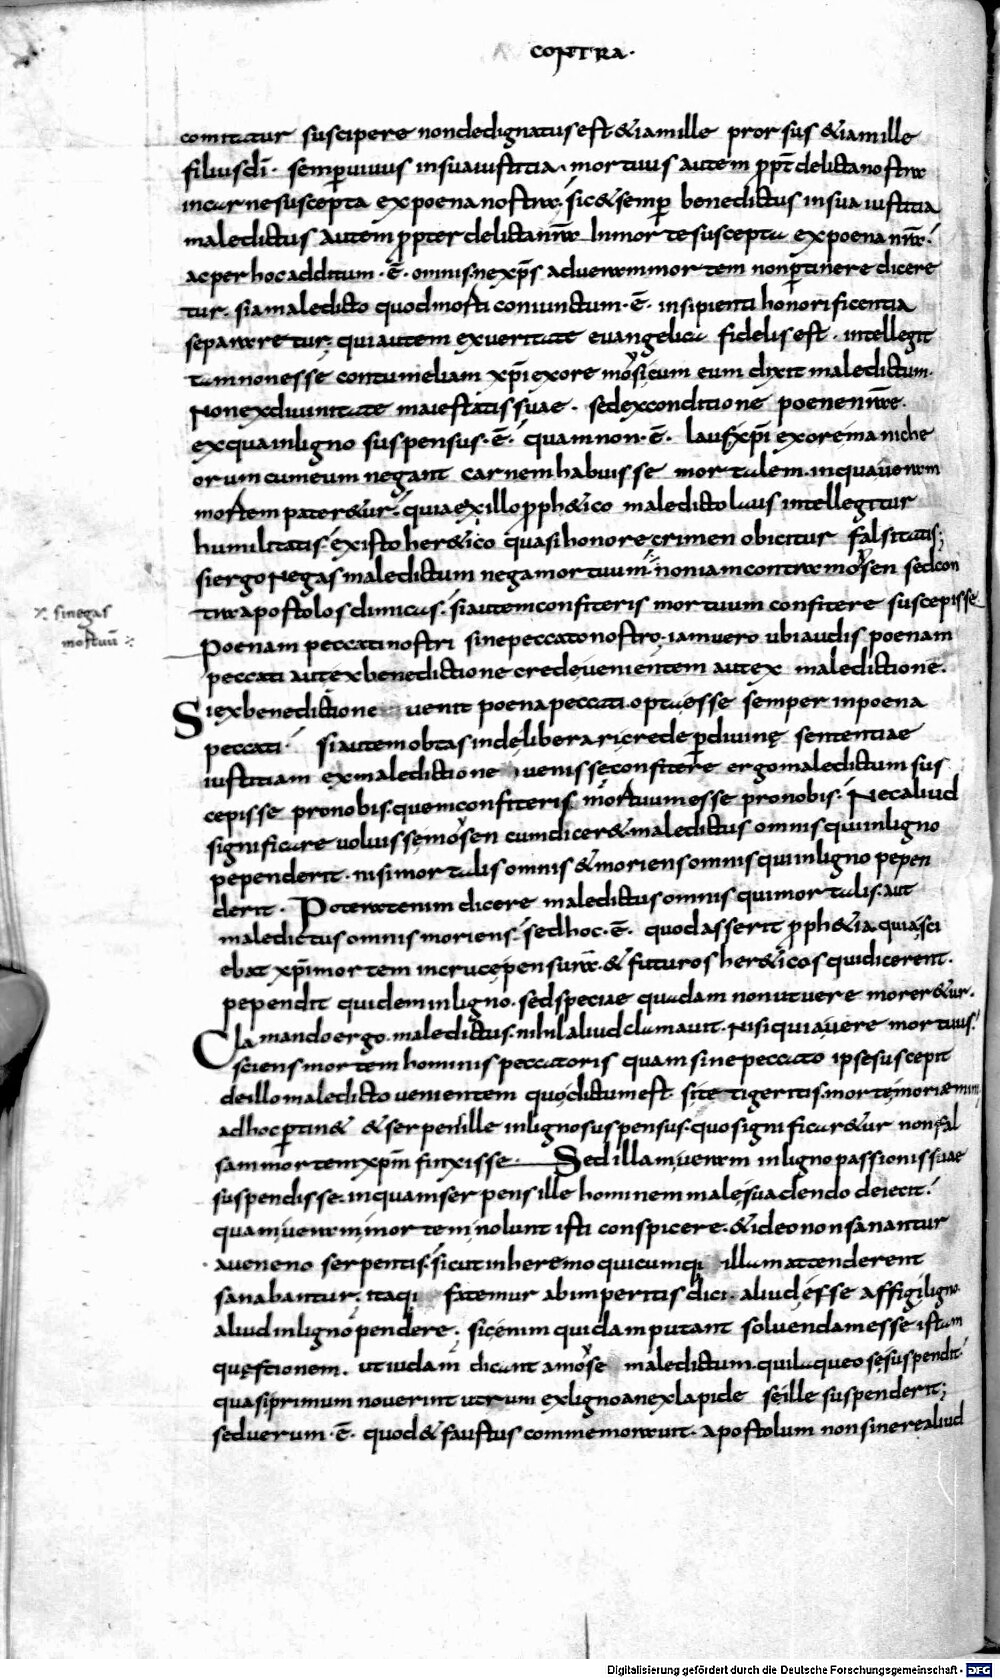 CONTRA·
comitatur suscipere nondedignatus est & iamille prorsus & iamille
filiusdī· semp̄ uiuus insuaiustitia· mortuus autem pp̄t delictanostra
incarnesuscepta expoenanostra; sic&semp̄ benedictus insua iustitia
maledictus autem pp̄ter delictanr̄a Inmortesuscepta expoena nr̄a·
acper hocadditum·ē· omnis· nexp̄s adueram mortem nonp̄tinere dicere
tur· siamaledicto quodmorti coniunctum·ē· insipienti honorificentia
separaretur; quiautem exueritate euangelica fidelis est· intellegit
tamnonesse contumeliam xp̄i exore mosicum eum dixit maledictum·
Nonexdiuinitate maiestatis suae· sedexconditione poenenr̄ae·
exquainligno suspensus·ē· quamnon·ē· laus xp̄i exoremaniche
orumcumeum negant carnemhabuisse mortalem· inquaueram
mortem pater&ur· quiaexillo proph&ico maledicto laus intellegitur
humilitatis· existo her&ico quasihonore crimen obicitur falsitatis;
siergo Negas maledictum negamortuum noniamcontra mosen sedcon
tra apostolos dimicas· siautemconfiteris mortuum confitere suscepisse
⁒ sinegas
mortuū ⁒
Poenam peccatinostri sinepeccatonostro· iamuero ubiaudis poenam
peccati autexbenedictione credeuenientem autex maledictione·
Siexbenedictione uenit poenapeccati· optaesse semper inpoena
peccati· siautemobtasindeliberari crede p̄diuinę sententiae
iustitiam exmaledictione uenisse confitere ergomaledictum sus
cepisse pronobis· quemconfiteris mortuumesse pronobis· Necaliud
significare uoluissemosen cumdicer& maledictus omnis quiinligno
pependerit· nisimortalis omnis & moriensomnis quiinligno pepen
derit· Poteratenim dicere maledictus omnis quimortalis· aut
maledictus omnis moriens· sedhoc·ē· quodasserit proph&ia· quiasci
ebat xp̄i mortem incrucepensura· & futuros her&icos quidicerent·
pependit quideminligno· sedspeciae quadam nonutuere morer&ur·
Clamandoergo· maledictus· nihilaliudclamauit· Nisi quiauere mortuus·
sciensmortem hominis peccatoris quamsinepeccato ipsesuscepit
deillomaledicto uenientem quodictumest· sitetigeritis· mortemoriemini
adhocp̄tin& & serpensille inlignosuspensus· quosignificar&ur nonfal
sammortemxp̄m finxisse· Sedillamueram inligno passionis suae
suspendisse· inquamserpensille hominemmalesuadendo deiecit·
quamueram mortem nolunt isti conspicere· & ideononsanantur
aueneno serpentis· sicutinheremo quicumqi illamattenderent
sanabantur; itaqi fatemur abimperitis dici· aliud esse affigiligno·
aliud inligno pendere; sicenim quidamputant soluendamesse istam
questionem· utiudam dicant amose maledictum· quilaqueo sesuspendit·
quasiprimum nouerint utrum exlignoanexlapide seille suspenderit;
seduerum·ē· quod&faustus commemorauit· apostolum nonsinerealiud